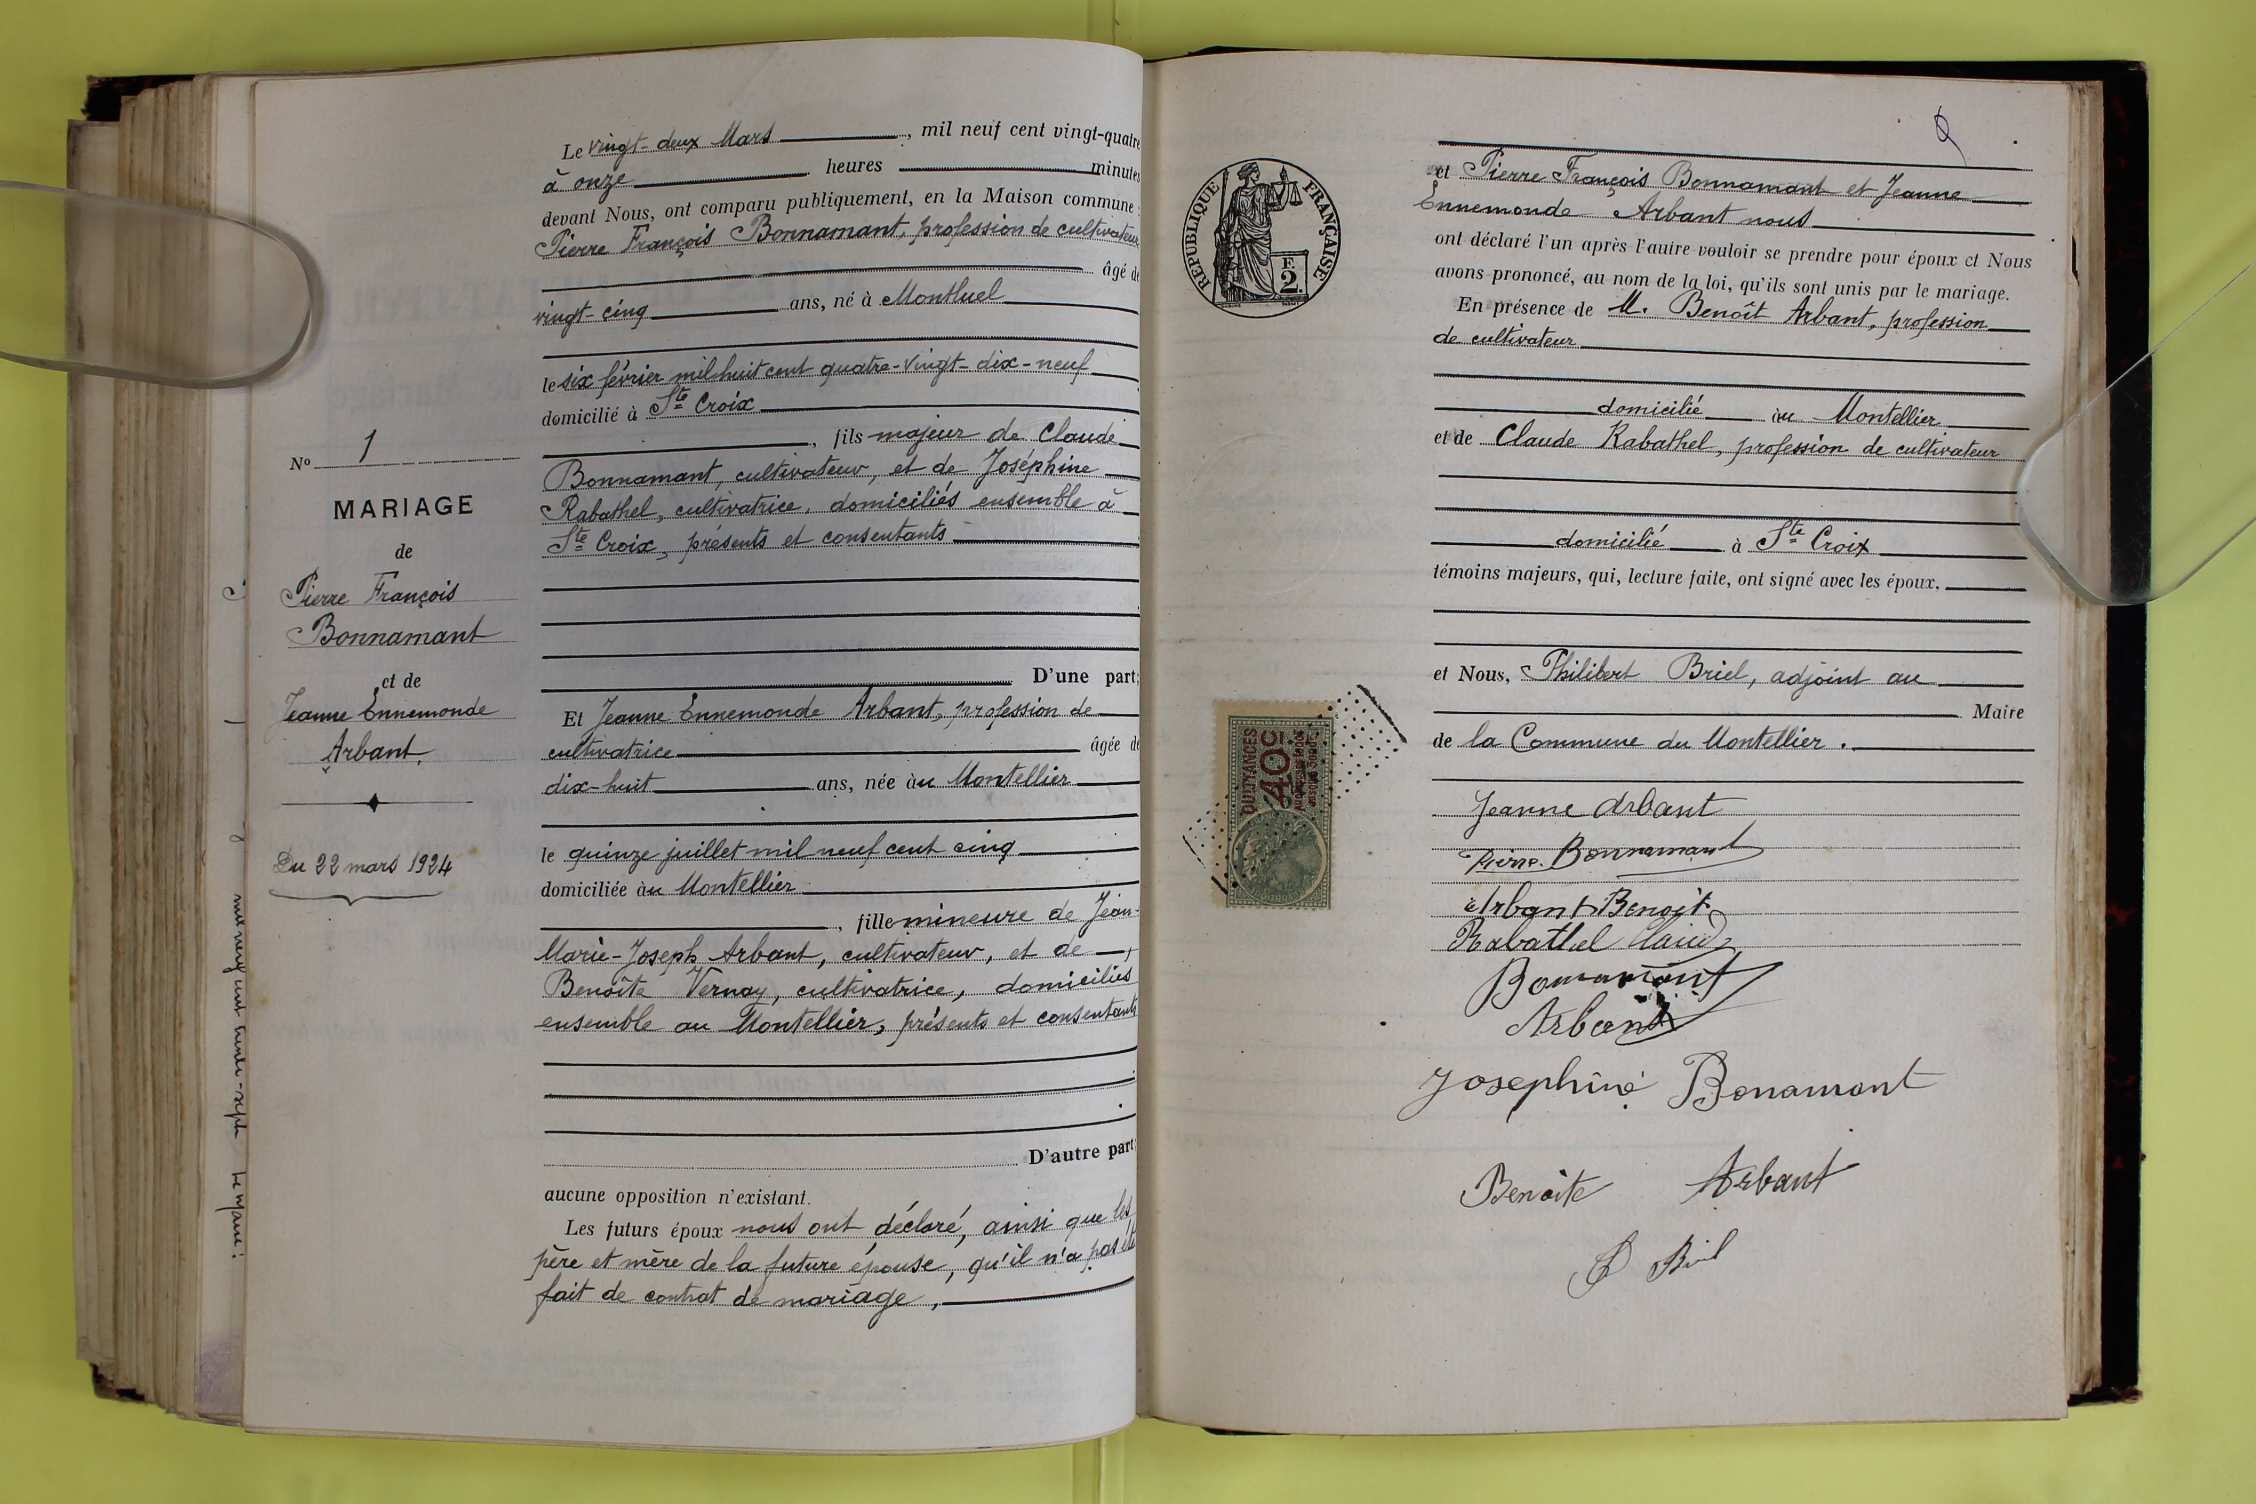 N° 1
MARIAGE
de
Pierre François
Bonnamant
et de
Jeanne Ennemonde
Arbant.
Du 22 mars 1924
Le vingt-deux Mars, mil neuf cent vingt-quatre
à onze heures minutes
devant Nous, ont comparu publiquement, en la Maison commune :
Pierre François Bonnamant, profession de cultivateur
âgé de
vingt-cinq ans, né à Montluel
le six février mil huit cent quatre-vingt-dix-neuf
domicilié à Ste Croix
, fils majeur de Claude
Bonnamant, cultivateur, et de Joséphine
Rabathel, cultivatrice, domiciliés ensemble à
Ste Croix, présents et consentants
D'une part;
Et Jeanne Ennemonde Arbant, profession de
cultivatrice âgée de
dix-huit ans, née au Montellier
le quinze juillet mil neuf cent cinq
domiciliée au Montellier
, fille mineure de Jean-
Marie-Joseph Arbant, cultivateur, et de
Benoîte Vernay, cultivatrice, domiciliés
ensemble au Montellier, présents et consentants
D'autre part;
aucune opposition n'existant.
Les futurs époux nous ont déclaré, ainsi que les
père et mère de la future épouse, qu'il n'a pas été
fait de contrat de mariage,
mil neuf cent trente-sept Le Maire:
RÉPUBLIQUE FRANÇAISE
F.
2
et Pierre François Bonnamant et Jeanne
Ennemonde Arbant nous
ont déclaré l'un après l'autre vouloir se prendre pour époux et Nous
avons prononcé, au nom de la loi, qu'ils sont unis par le mariage.
En présence de M. Benoît Arbant, profession
de cultivateur
domicilié au Montellier
et de Claude Rabathel, profession de cultivateur
domicilié à Ste Croix
témoins majeurs, qui, lecture faite, ont signé avec les époux.
et Nous, Philibert Briel, adjoint au
Maire
de la Commune du Montellier.
QUITTANCES
40C
Jeanne Arbant
Pierre Bonnamant
Arbant Benoit
Rabathel Claude
Bonnamant
Arbant
Joséphine Bonamant
Benoite Arbant